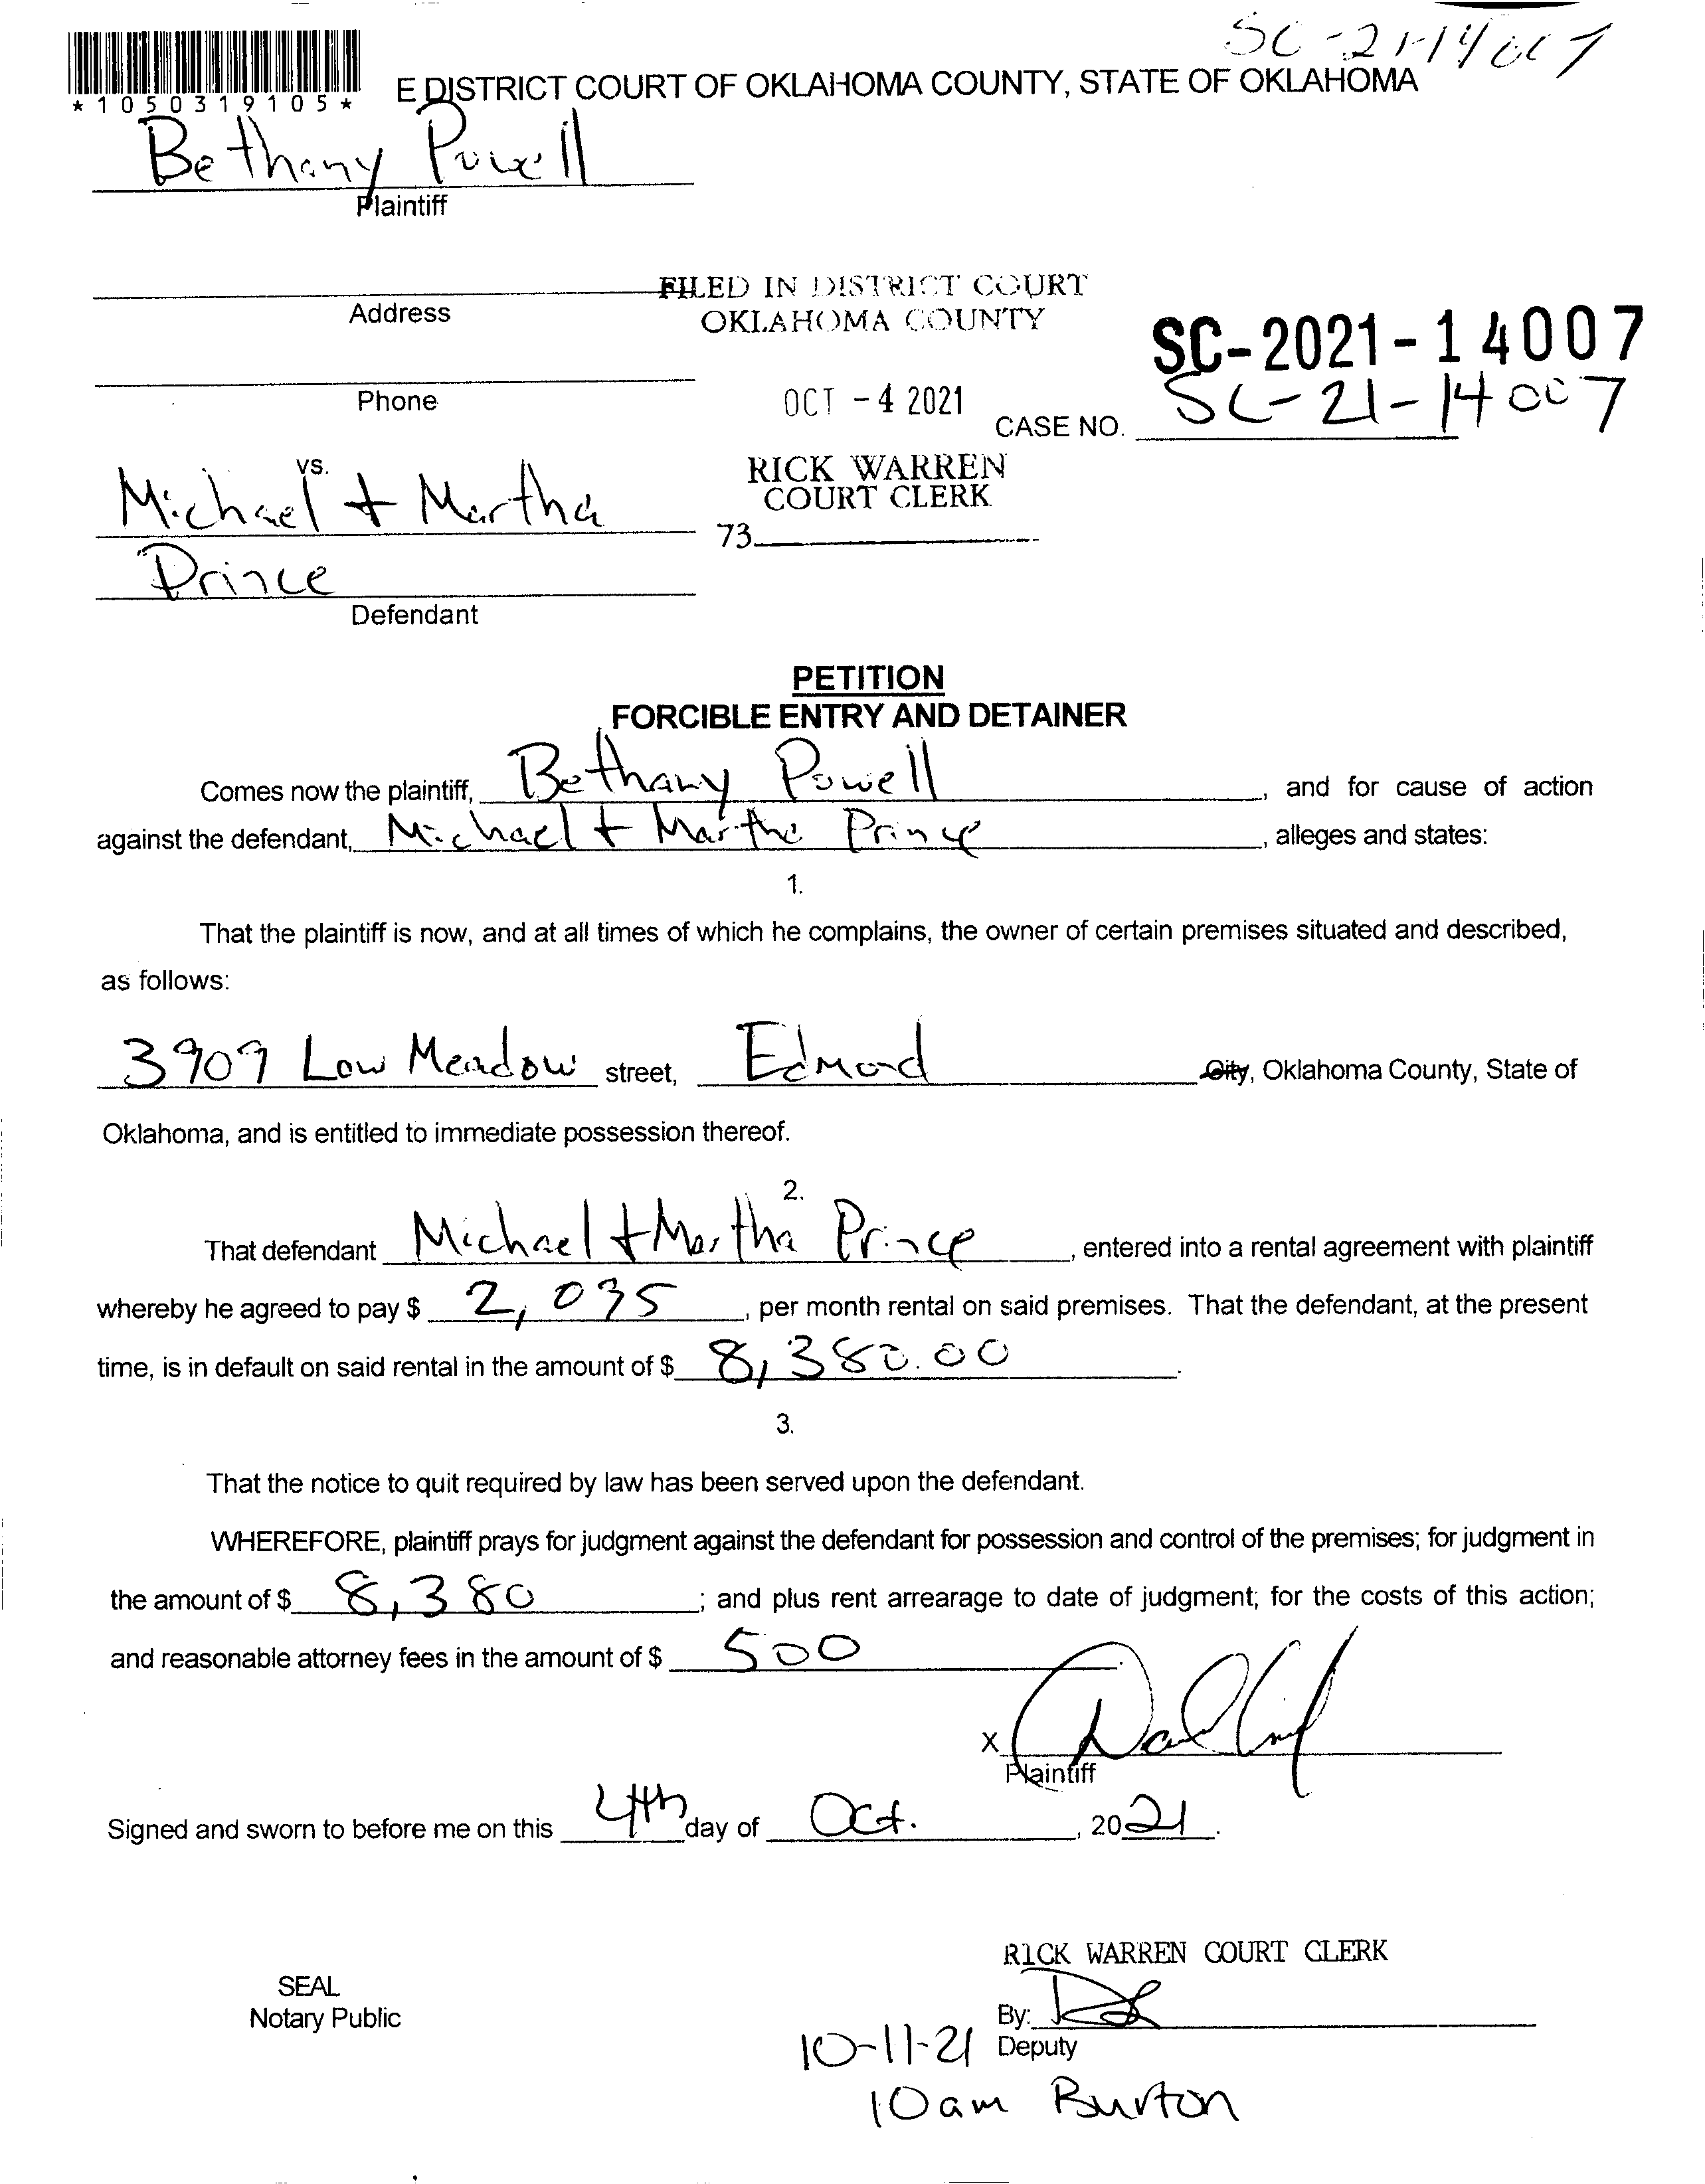 SC-21-14007
*1050319105*
E DISTRICT COURT OF OKLAHOMA COUNTY, STATE OF OKLAHOMA
Bethany Powell
Plaintiff
Address
FILED IN DISTRICT COURT
OKLAHOMA COUNTY
SC-2021-14007
Phone
OCT -4 2021
CASE NO. SC-21-14007
vs.
Michael + Martha
Prince
Defendant
RICK WARREN
COURT CLERK
73
PETITION
FORCIBLE ENTRY AND DETAINER
Comes now the plaintiff, Bethany Powell, and for cause of action
against the defendant, Michael + Martha Prince, alleges and states:
1.
That the plaintiff is now, and at all times of which he complains, the owner of certain premises situated and described,
as follows:
3909 Low Meadow street, Edmond City, Oklahoma County, State of
Oklahoma, and is entitled to immediate possession thereof.
2.
That defendant Michael + Martha Prince, entered into a rental agreement with plaintiff
whereby he agreed to pay $ 2,035, per month rental on said premises. That the defendant, at the present
time, is in default on said rental in the amount of $ 8,380.00.
3.
That the notice to quit required by law has been served upon the defendant.
WHEREFORE, plaintiff prays for judgment against the defendant for possession and control of the premises; for judgment in
the amount of $ 8,380; and plus rent arrearage to date of judgment; for the costs of this action;
and reasonable attorney fees in the amount of $ 500.
X
Plaintiff
Signed and sworn to before me on this 4th day of Oct., 2021.
RICK WARREN COURT CLERK
SEAL
Notary Public
By:
Deputy
10-11-21
10am Burton